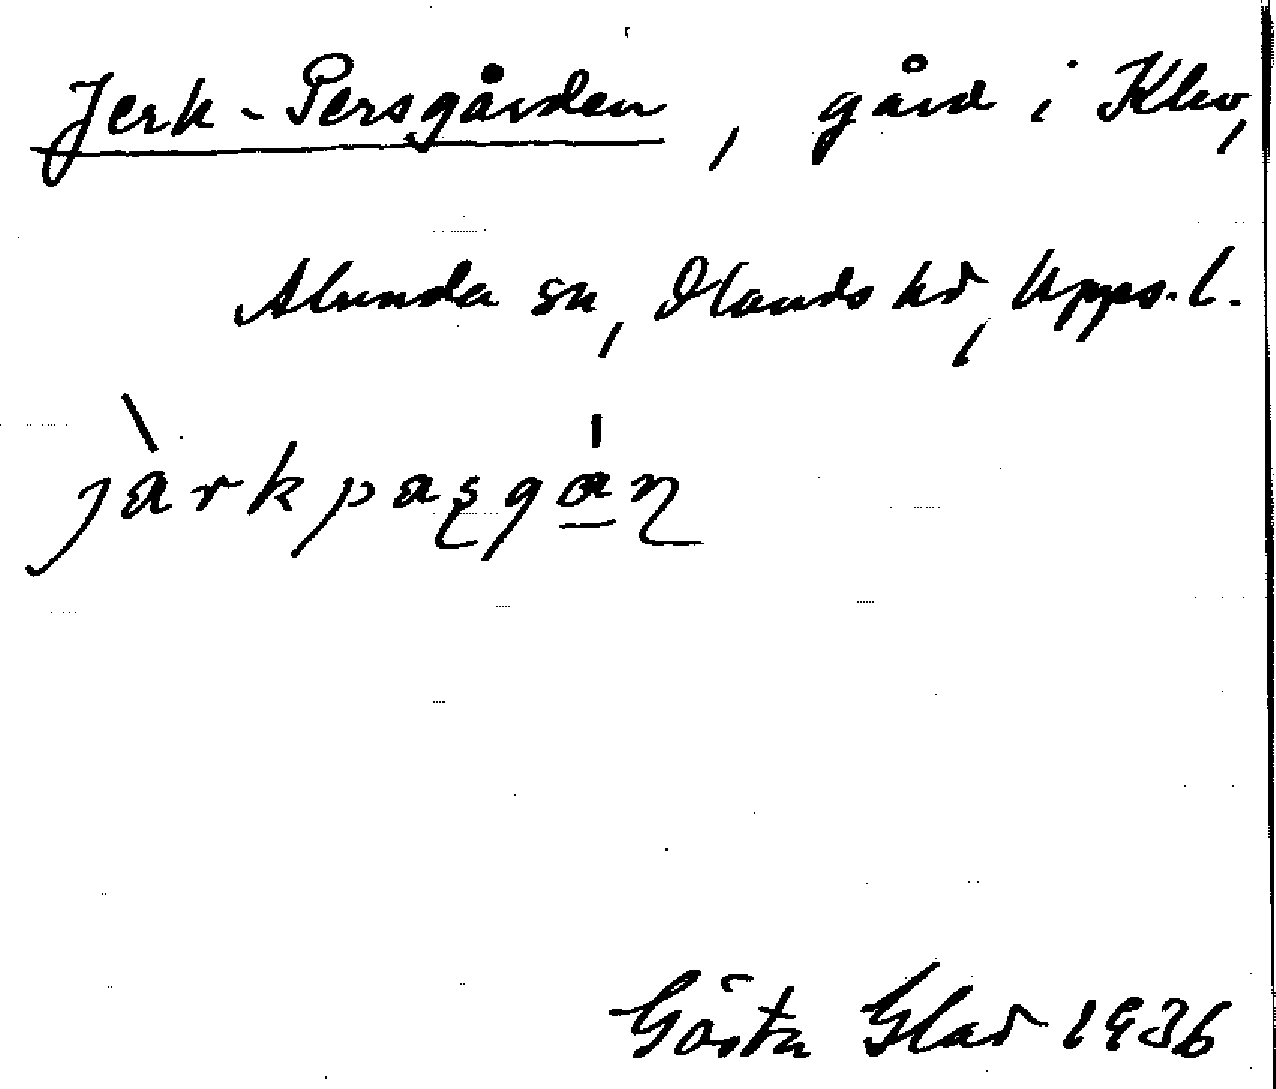 Jerk-Persgården, gård i Klev,
Alunda sn, Olands hd, Upps. l.
jàrkpaʂgɑ̍ɳ
Gösta Glad 1936